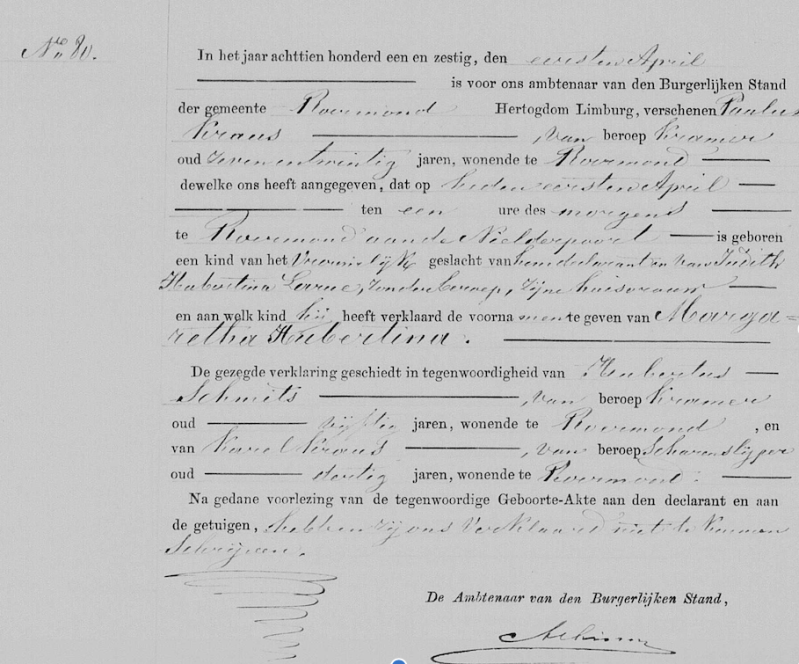 No 80.
In het jaar achttien honderd een en zestig, den eersten April
is voor ons ambtenaar van den Burgerlijken Stand
der gemeente Roermond Hertogdom Limburg, verschenen Paulus
Kraus, van beroep Kramer
oud zeven en twintig jaren, wonende te Roermond
dewelke ons heeft aangegeven, dat op heden eersten April
ten een ure des morgens
te Roermond aan de Neelderpoort is geboren
een kind van het Vrouwelijk geslacht van hem declarant en van Judith
Hubertina , zonder beroep, zijne huisvrouw
en aan welk kind hij heeft verklaard de voornamen te geven van Marga=
retha Hubertina.
De gezegde verklaring geschiedt in tegenwoordigheid van Hubertus
Schmits, van beroep Kramer
oud vijftig jaren, wonende te Roermond, en
van Karel Kraus, van beroep Scharenslijper
oud dertig jaren, wonende te Roermond.
Na gedane voorlezing van de tegenwoordige Geboorte-Akte aan den declarant en aan
de getuigen, hebben zij ons verklaard niet te kunnen
Schrijven.
De Ambtenaar van den Burgerlijken Stand,